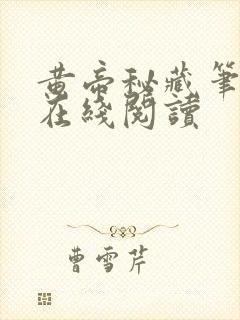 黄帝秘藏笔
在綫閱讀
曹雪芹